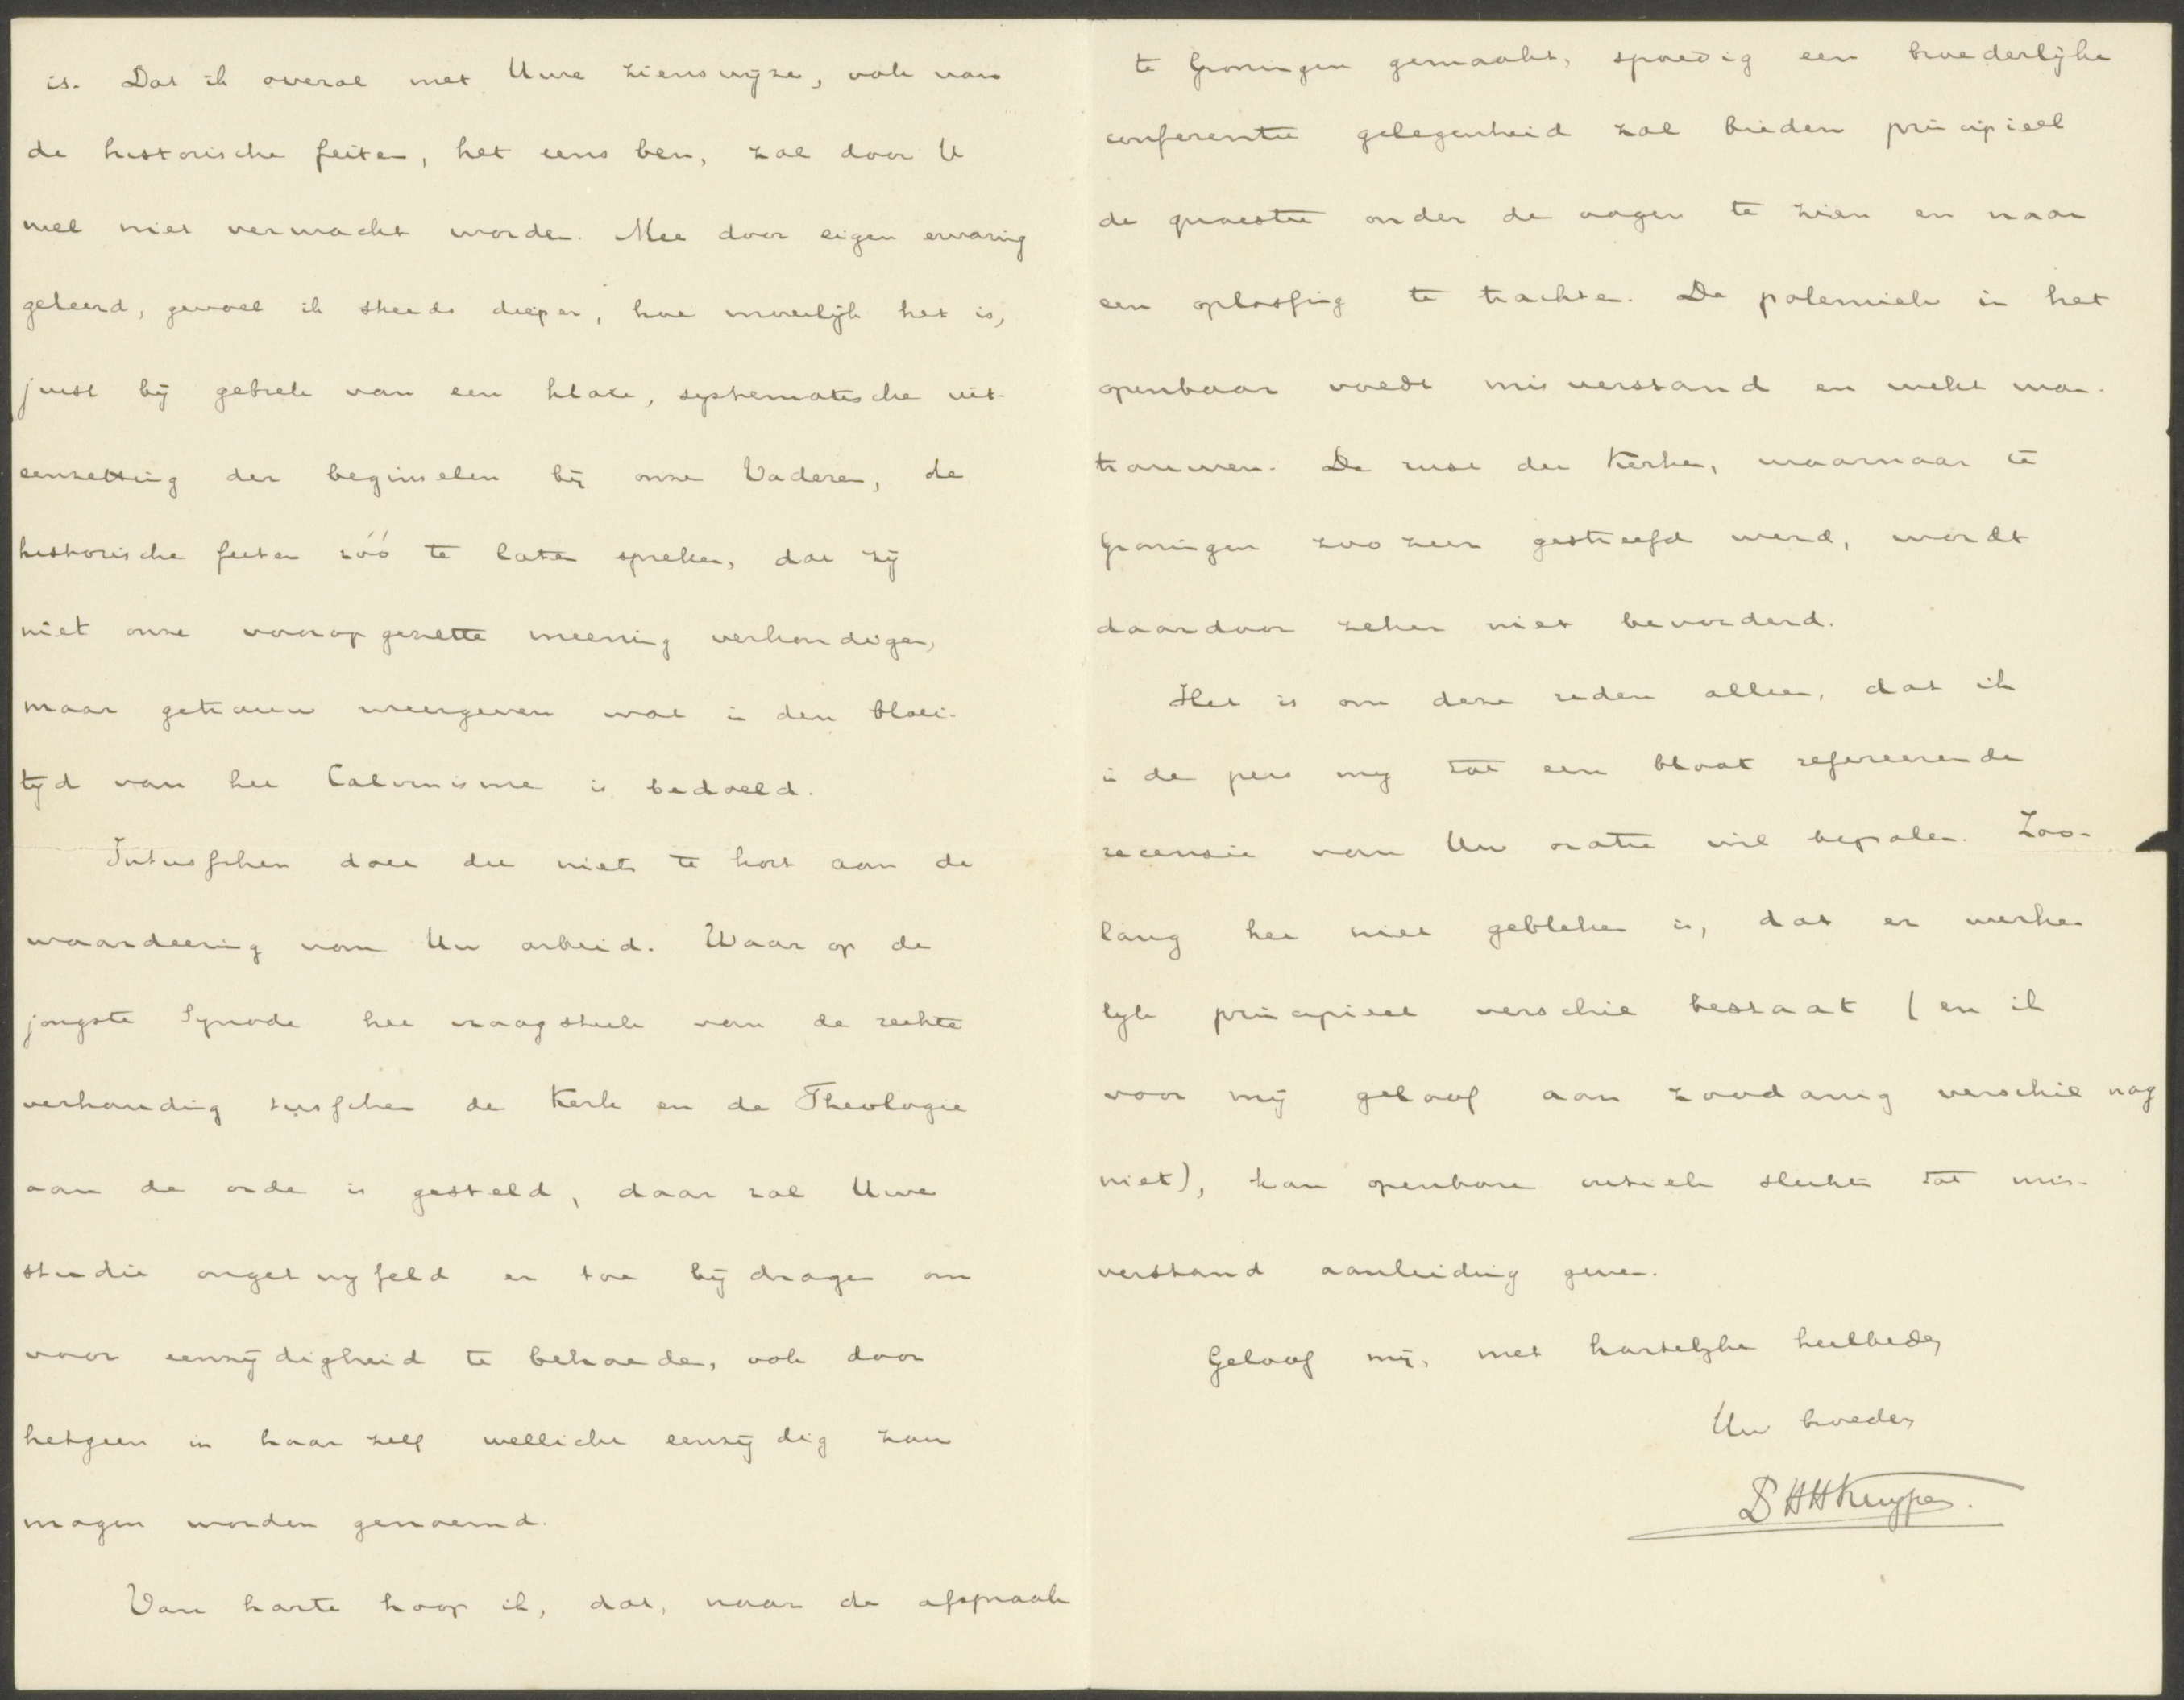 is. Dat ik overal met Uwe zienswijze, ook van
de historische feiten, het eens ben, zal door U
wel niet verwacht worden. Mee door eigen ervaring
geleerd, gevoel ik steeds dieper, hoe moeilijk het is,
juist bij gebrek van een klare, systematische uit-
eenzetting der beginselen bij onze Vaderen, de
historische feiten zóó te laten spreken, dat zij
niet onze vooropgezette meening verkondigen,
maar getrouw weergeven wat in den bloei-
tijd van het Calvinisme is bedoeld.
Intusschen doet dit niets te kort aan de
waardeering van Uw arbeid. Waar op de
jongste Synode het vraagstuk van de rechte
verhouding tusschen de Kerk en de Theologie
aan de orde is gesteld, daar zal Uwe
studie ongetwijfeld er toe bijdragen om
voor eenzijdigheid te behoeden, ook door
hetgeen in haar zelf wellicht eenzijdig zou
mogen worden genoemd.
Van harte hoop ik, dat, naar de afspraak
te Groningen gemaakt, spoedig een broederlijke
conferentie gelegenheid zal bieden principieel
de quaestie onder de oogen te zien en naar
een oplossing te trachten. De polemiek in het
openbaar voedt misverstand en wekt wan-
trouwen. De rust der Kerken, waarnaar te
Groningen zoo zeer gestreefd werd, wordt
daardoor zeker niet bevorderd.
Het is om deze reden alleen, dat ik
in de pers mij tot een bloot refereerende
recensie van Uw oratie wil bepalen. Zoo-
lang het niet gebleken is, dat er werke-
lijk principieel verschil bestaat (en ik
voor mij geloof aan zoodanig verschil nog
niet), kan openbare critiek slechts tot mis-
verstand aanleiding geven.
Geloof mij, met hartelijke heilbede,
Uw broeder,
Dr HHKuyper.